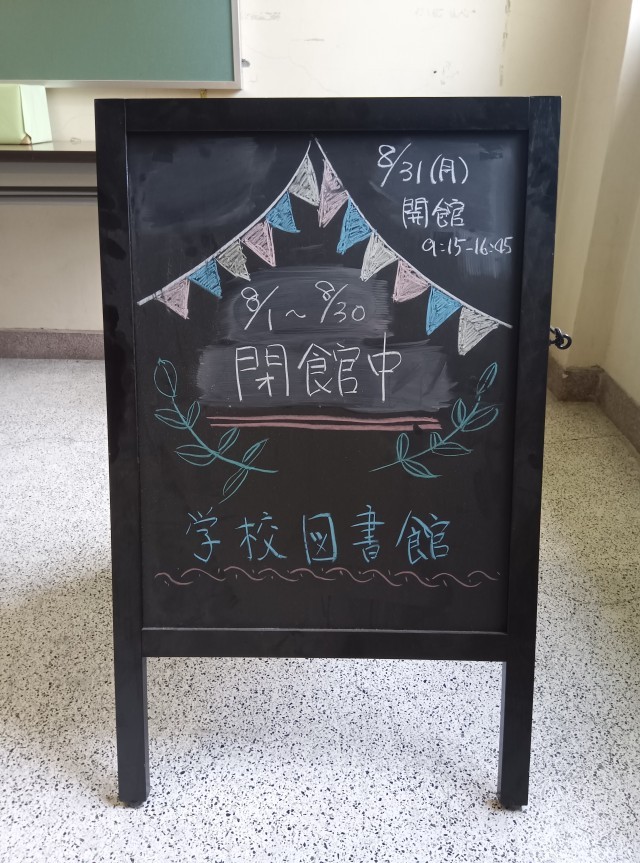 8/31(月)
開館
9:15-16:45
8/1~8/30
閉館中
学校図書館